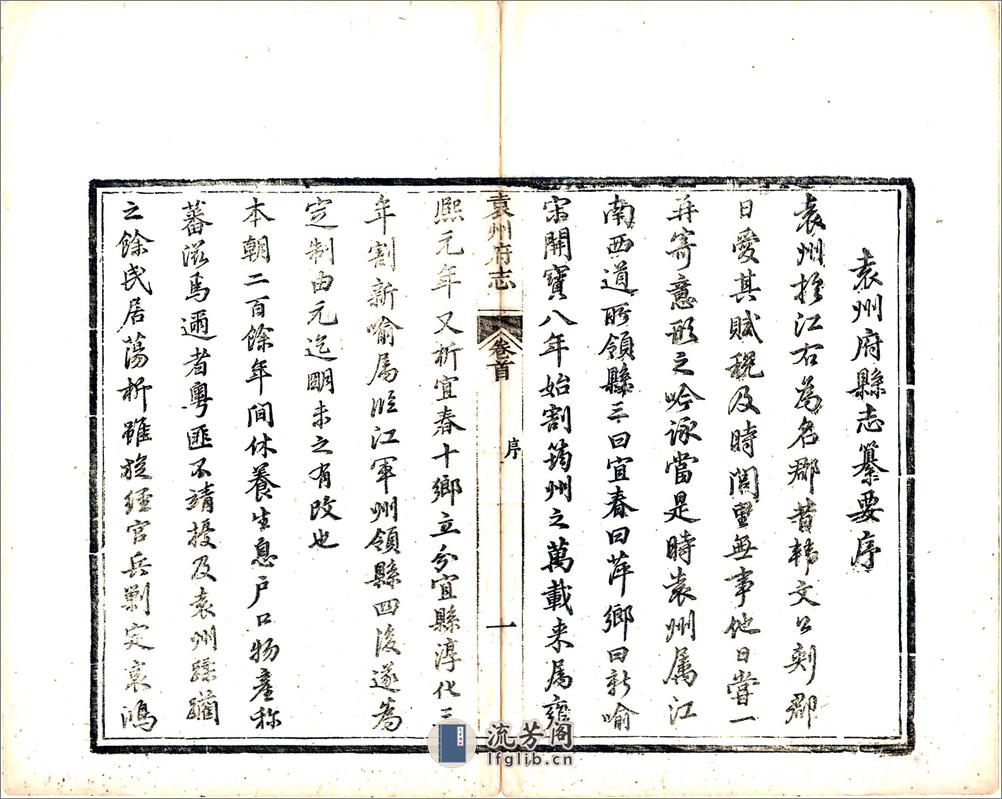 袁州府縣志纂要序
袁州於江右為名郡昔韓文公刺郡
日愛其賦稅及時閭里無事他日嘗一
再寄意形之吟詠當是時袁州属江
南西道所領縣三曰宜春曰萍鄉曰新喻
宋開寶八年始割筠州之萬載来属雍
袁州府志
卷首
序
一
熙元年又析宜春十鄉立分宜縣淳化三
年割新喻属臨江軍州領縣四後遂為
定制由元迄明未之有改也
本朝二百餘年間休養生息户口物產称
蕃滋焉邇者粵匪不靖擾及袁州蹂躪
之餘民居蕩析雖旋經官兵剿定哀鴻
流芳阁
lfglib.cn